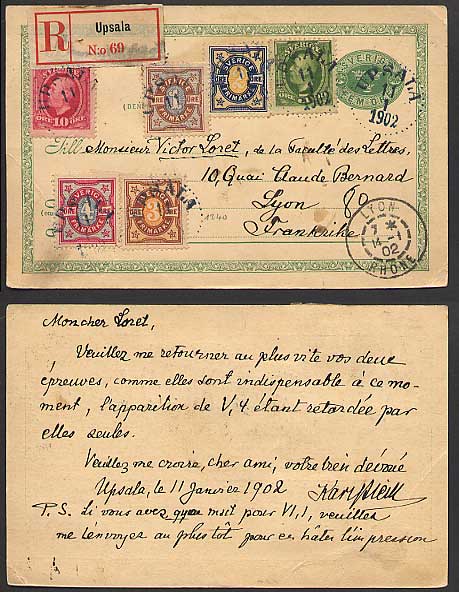 R Upsala
N:o 69
UPSALA
11
1902
SVERIGE
FEM ÖRE
UPSALA
11
1
1902
SVERIGE
FRIMÄRKE
10 ÖRE
Till Monsieur Victor Loret, de la Faculté des Lettres,
10, Quai Claude Bernard
Lyon
Frankrike
SVERIGE
4
FRIMÄRKE
SVERIGE
3
FRIMÄRKE
1240
LYON
7
14 - 1
02
RHONE
Mon cher Loret,
Veuillez me retourner au plus vite vos deux
épreuves, comme elles sont indispensable à ce mo-
ment, l'apparition de V, 4 étant retardée par
elles seules.
Veuillez me croire, cher ami, votre bien dévoué
Upsala, le 11 Janvier 1902 Karl Piehl
P.S. Si vous avez msit pour VI, 1, veuillez
me l'envoyer au plus tôt pour en hâter l'impression